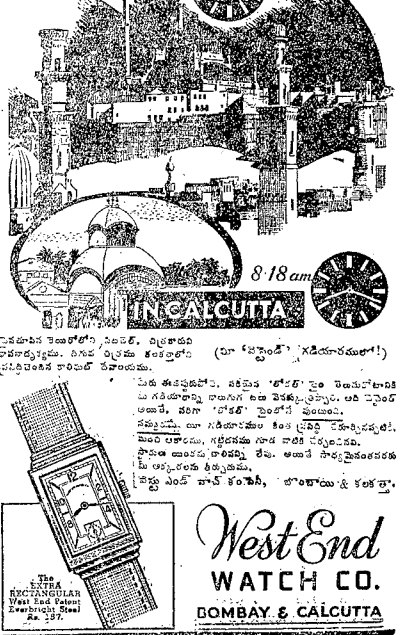 8·18 am
IN CALCUTTA
పైనచూపిన కెయిరోలోని సిటడెల్, చిత్రకారుని
దిగువ చిత్రము కలకత్తాలోని
కాలిఘాట్ దేవాలయము.
(మీ 'వెస్టెండ్' గడియారములో!)
మీరు ఈచెప్పుడుపోసి, సరియైన 'లోకల్' టైం తెలుసుకోటానికి
మీ గడియారాన్ని నాలుగు గంటలు వెనక్కు త్రిప్పాలి. అది వెస్టెండ్
అయితే, సరిగా 'లోకల్' టైంలోనే వుంటుంది.
నమ్మకమైన యీ గడియారముల కింత ప్రసిద్ధి
మంచి ఆకారము, గట్టిదనము గూడ వాటికి
స్టాకులు యింకను చాలినన్ని లేవు. అయితే సాధ్యమైనంతవరకు
మీ అక్కరలను తీర్చుదుము.
వెస్టు ఎండ్ వాచ్ కంపెనీ, బొంబాయి & కలకత్తా.
The
EXTRA
RECTANGULAR
West End Patent
Everbright Steel
Rs. 187.
West End
WATCH CO.
BOMBAY & CALCUTTA